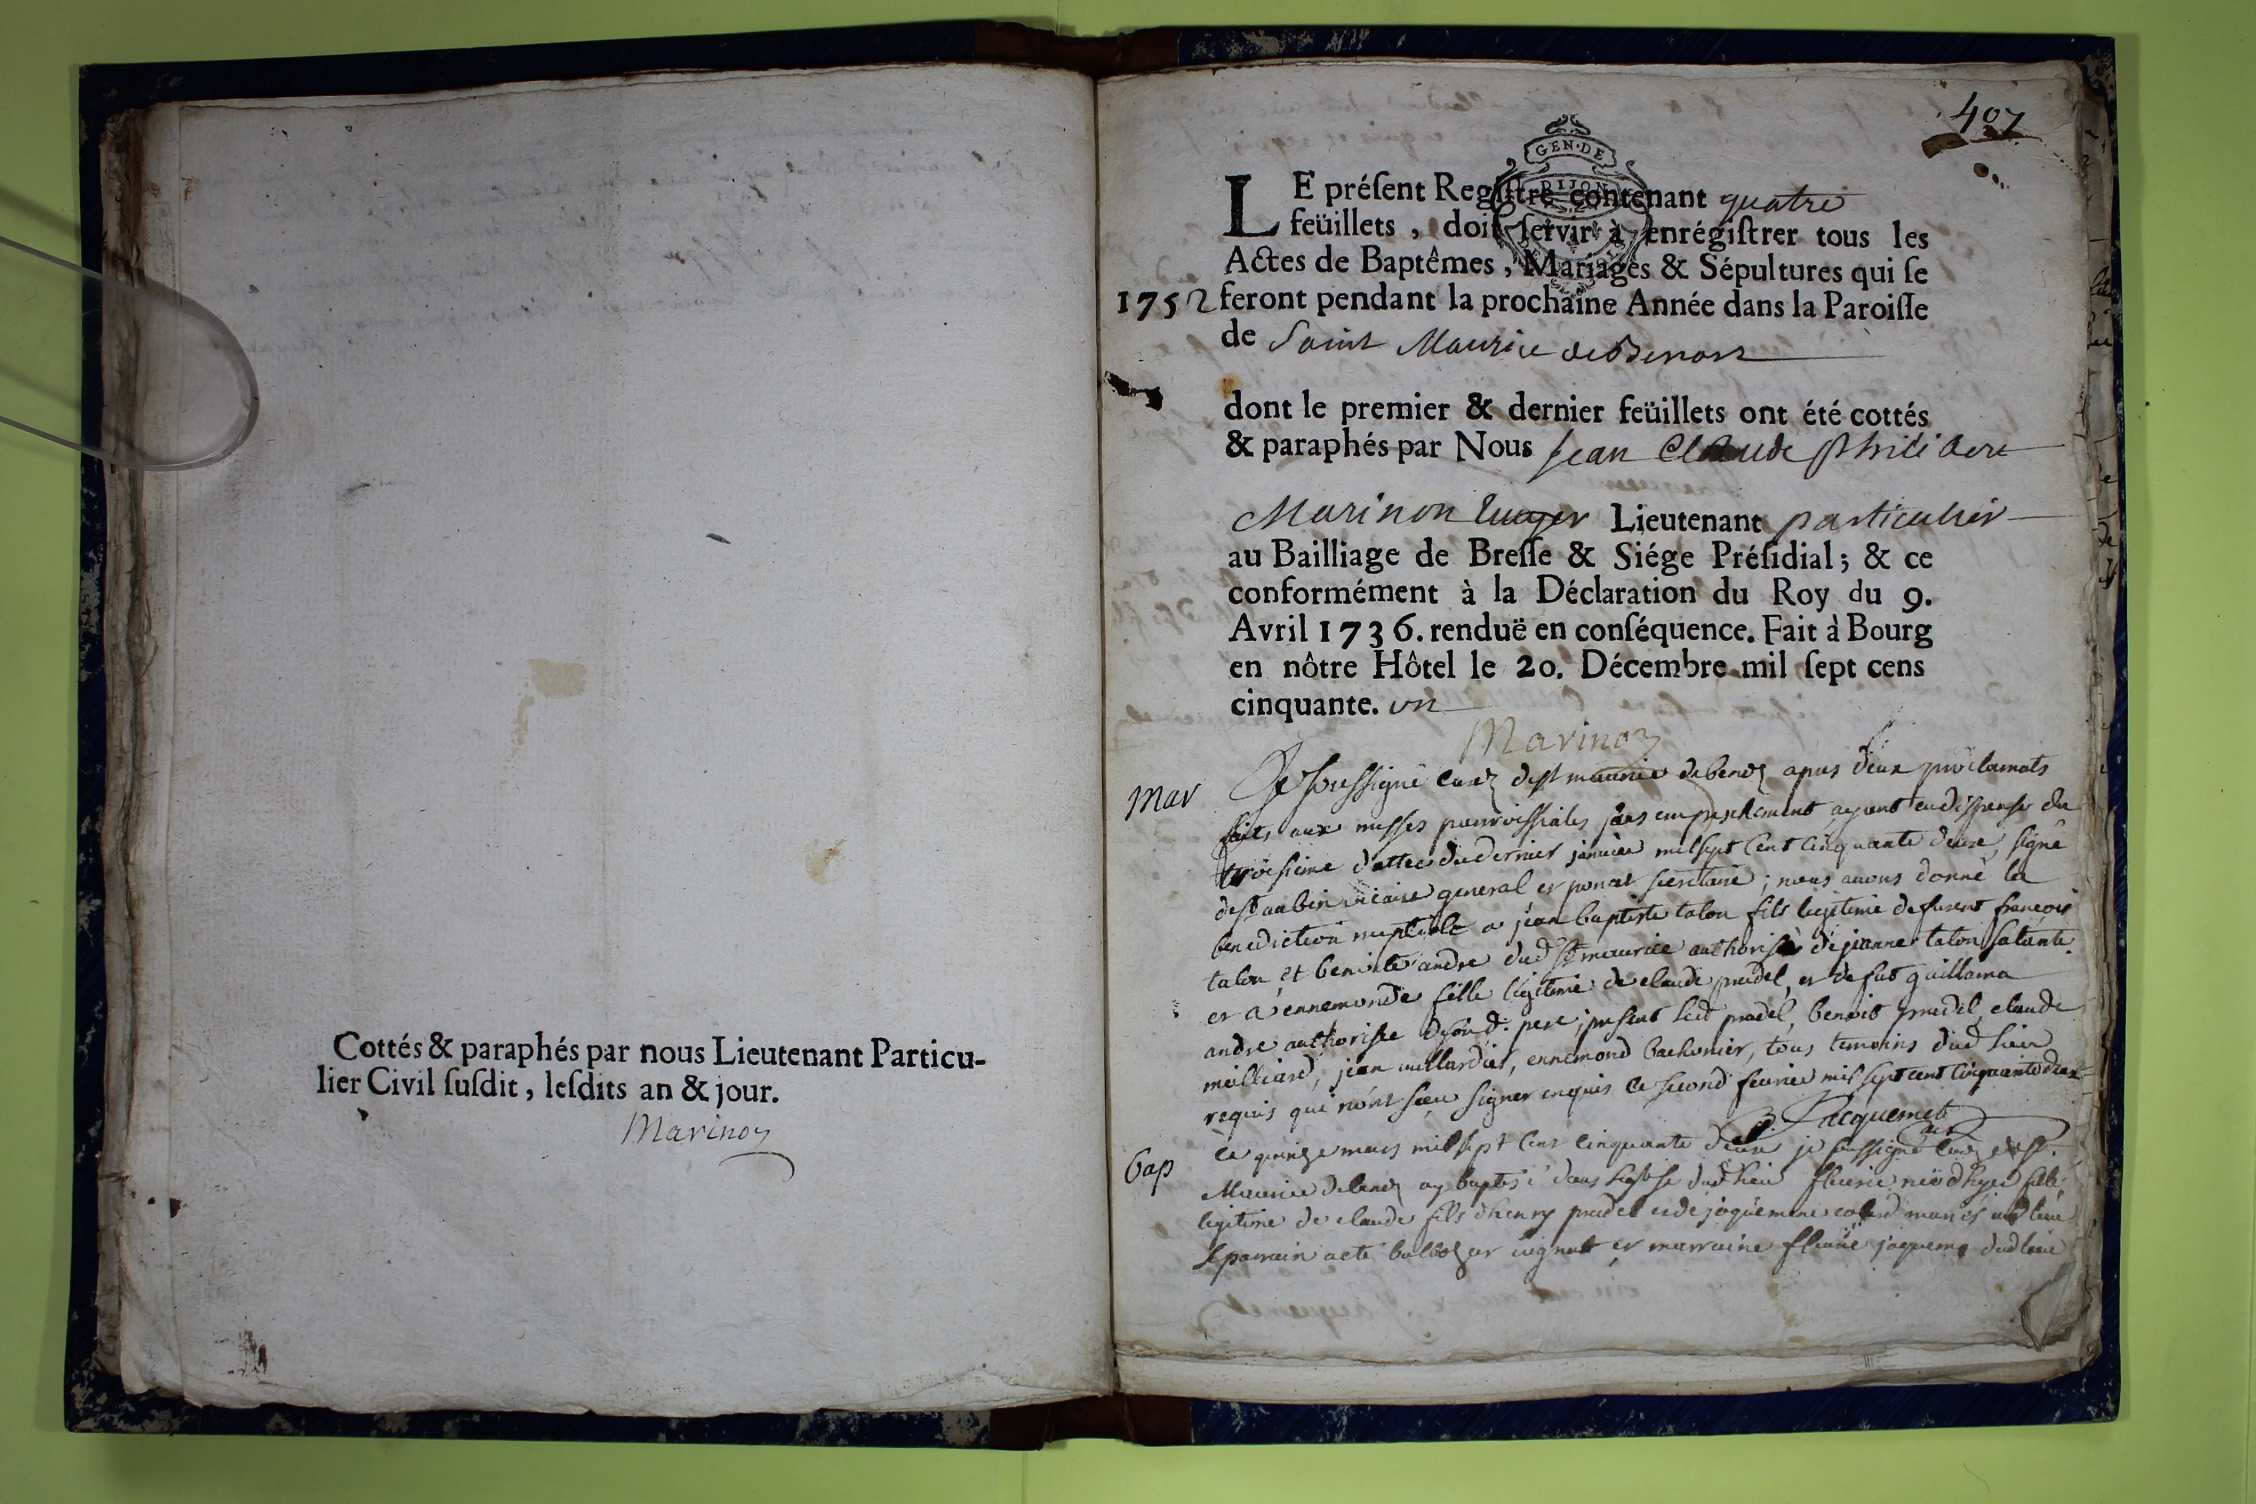 Cottés & paraphés par nous Lieutenant Particu-
lier Civil ſuſdit, leſdits an & jour.
Marinon
407
GEN·DE
DIJON
LE préſent Regiſtre contenant quatre
feüillets, doit ſervir à enrégiſtrer tous les
Actes de Baptêmes, Mariages & Sépultures qui ſe
1752 feront pendant la prochaine Année dans la Paroiſſe
de Saint Maurice de Benost
dont le premier & dernier feüillets ont été cottés
& paraphés par Nous Jean Claude Philibert
Marinon Lieutenant particulier
au Bailliage de Breſſe & Siége Préſidial; & ce
conformément à la Déclaration du Roy du 9.
Avril 1736. renduë en conſéquence. Fait à Bourg
en nôtre Hôtel le 20. Décembre mil ſept cens
cinquante. un
Marinon
mar Je soussigné curé de st maurice de apres deux proclamats
faits aux messes parroissiales sans empeschement ayant eu dispense du
troisieme dattée du dernier janvier mil sept cent cinquante deux, signé
de st aubin vicaire general et poncet secretaire; nous avons donné la
benediction nuptiale a jean baptiste talon fils legitime de françois
talon et benoite andre dud st maurice authorisé de jeanne talon sa tante
et a ennemonde fille legitime de claude pradel, et de guillama
andre authorisée de son d. pere; present led pradel, benoit pradel, claude
milliard, jean ennemond tous temoins dud lieu
requis qui n'ont sçeu signer enquis ce second fevrier mil sept cent cinquante deux
Jacquemet
bap ce quinze mars mil sept cent cinquante deux je sussigné curé de st.
Maurice de ay baptisé dans leglise dud lieu fleurie née d'hyer fille
legitime de claude fils d'henry pradel et de mariés aud lieu
le parrain a eté et marraine fleurie dud lieu